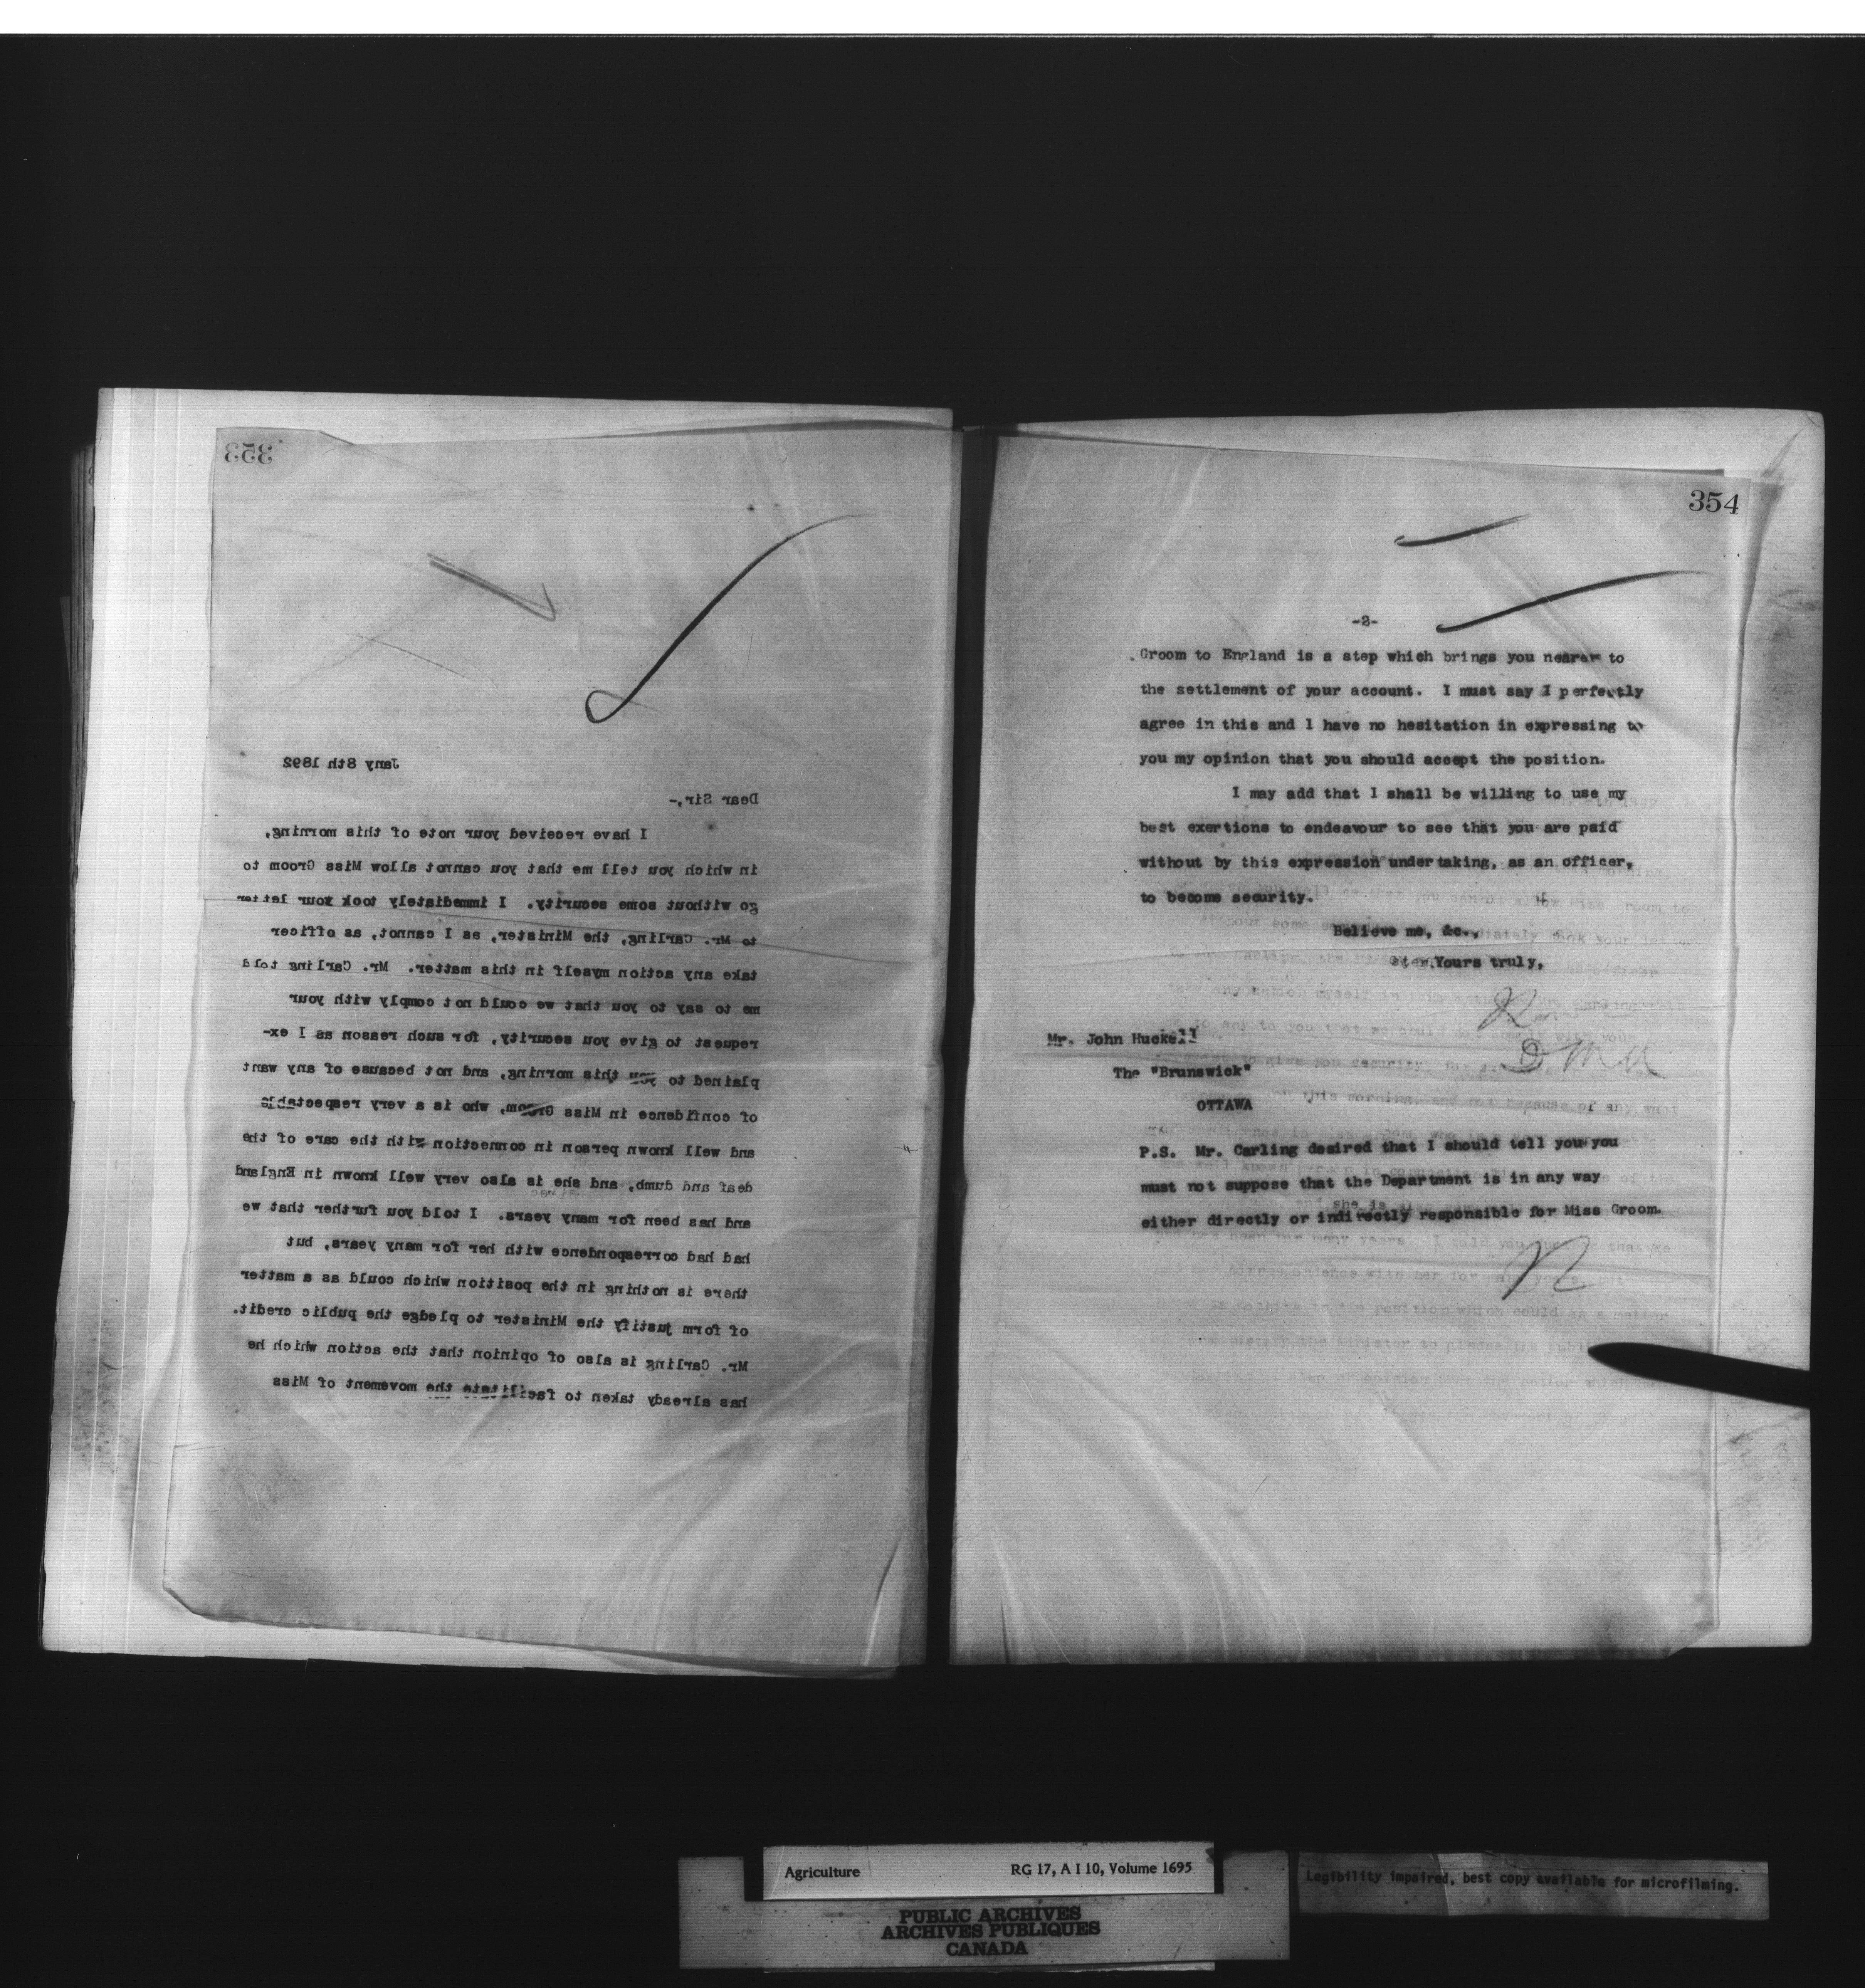 353
Jany 8th 1892
Dear Sir,-
I have received your note of this morning,
in which you tell me that you cannot allow Miss Groom to
go without some security. I immediately took your letter
to Mr. Carling, the Minister, as I cannot, as officer
take any action myself in this matter. Mr. Carling told
me to say to you that we could not comply with your
request to give you security, for such reason as I ex-
plained to you this morning, and not because of any want
of confidence in Miss Groom, who is a very respectable
and well known person in connection with the care of the
deaf and dumb, and she is also very well known in England
and has been for many years. I told you further that we
had had correspondence with her for many years, but
there is nothing in the position which could as a matter
of form justify the Minister to pledge the public credit.
Mr. Carling is also of opinion that the action which he
has already taken to facilitate the movement of Miss
354
-2-
Groom to England is a step which brings you nearer to
the settlement of your account. I must say I perfectly
agree in this and I have no hesitation in expressing to
you my opinion that you should accept the position.
I may add that I shall be willing to use my
best exertions to endeavour to see that you are paid
without by this expression undertaking, as an officer,
to become security.
Believe me, &c.,
Yours truly,
Mr. John Huckell
The "Brunswick"
OTTAWA
P.S. Mr. Carling desired that I should tell you you
must not suppose that the Department is in any way
either directly or indirectly responsible for Miss Groom.
Agriculture RG 17, A I 10, Volume 1695
PUBLIC ARCHIVES
ARCHIVES PUBLIQUES
CANADA
Legibility impaired, best copy available for microfilming.